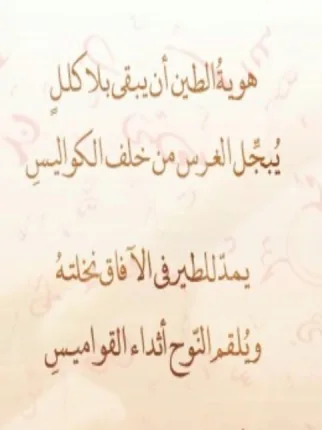 هويةُ الطين أن يبقى بلا كللٍ
يُبجِّل الغرس من خلف الكواليسِ
يمدّ للطير في الآفاق نخلتهُ
ويُلقم النّوح أثداء القواميسِ